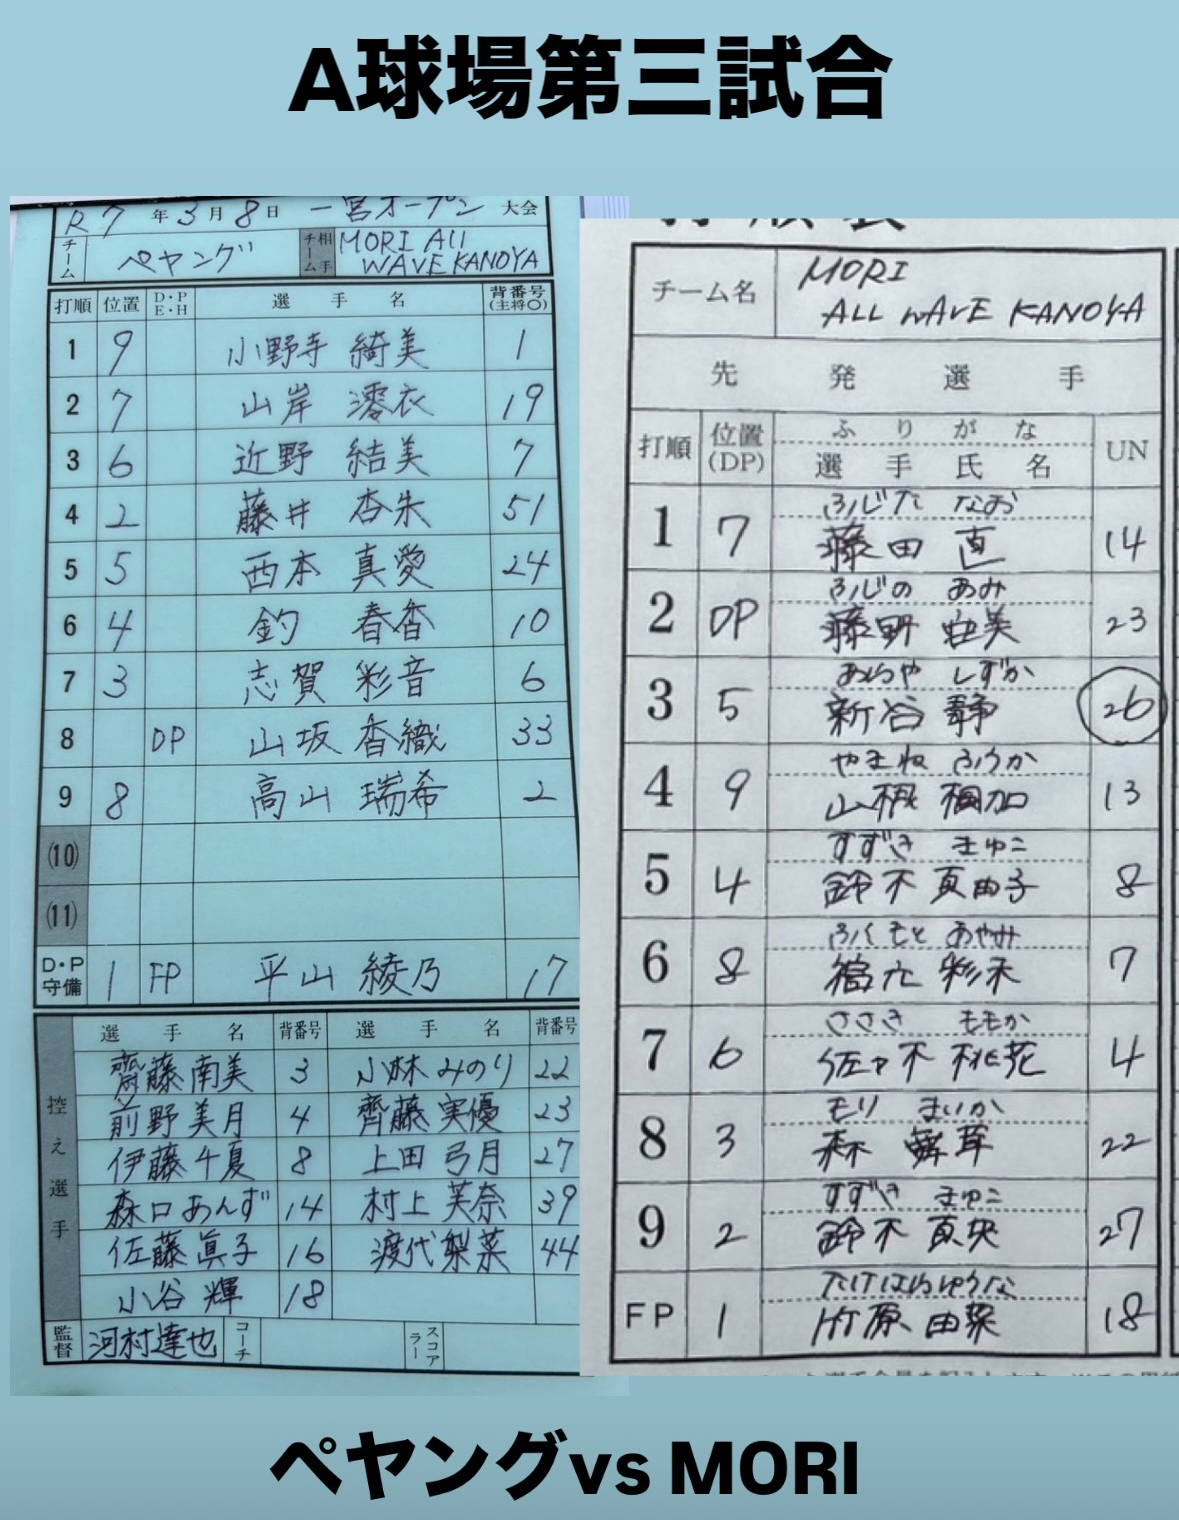 A球場第三試合
R7年3月8日 一宮オープン 大会
チーム ペヤング 相手チーム MORI All WAVE KANOYA
打順 位置 D・P E・H 選手名 背番号(主将○)
1 9 小野寺 綺美 1
2 7 山岸 澪衣 19
3 6 近野 結美 7
4 2 藤井 杏朱 51
5 5 西本 真愛 24
6 4 釣 春香 10
7 3 志賀 彩音 6
8 DP 山坂 香織 33
9 8 高山 瑞希 2
(10)
(11)
D・P守備 1 FP 平山 綾乃 17
控え選手
選手名 背番号 選手名 背番号
齋藤南美 3 小林みのり 22
前野美月 4 齊藤実優 23
伊藤千夏 8 上田弓月 27
森口あんず 14 村上芙奈 39
佐藤眞子 16 渡代梨菜 44
小谷輝 18
監督 河村達也 コーチ スコアラー
チーム名 MORI
ALL WAVE KANOYA
先発選手
打順 位置(DP) ふりがな 選手氏名 UN
ふじた なお
1 7 藤田 直 14
ふじの あみ
2 DP 藤野 亜美 23
あらや しずか
3 5 新谷 静 26
やまね ふうか
4 9 山根 楓加 13
すずき まゆこ
5 4 鈴木 真由子 8
ふくもと あやみ
6 8 福元 彩未 7
ささき ももか
7 6 佐々木 桃花 4
もり まいか
8 3 森 舞耶 22
すずき まゆこ
9 2 鈴木 真央 27
たけはらゆうな
FP 1 竹原 由菜 18
ペヤングvs MORI